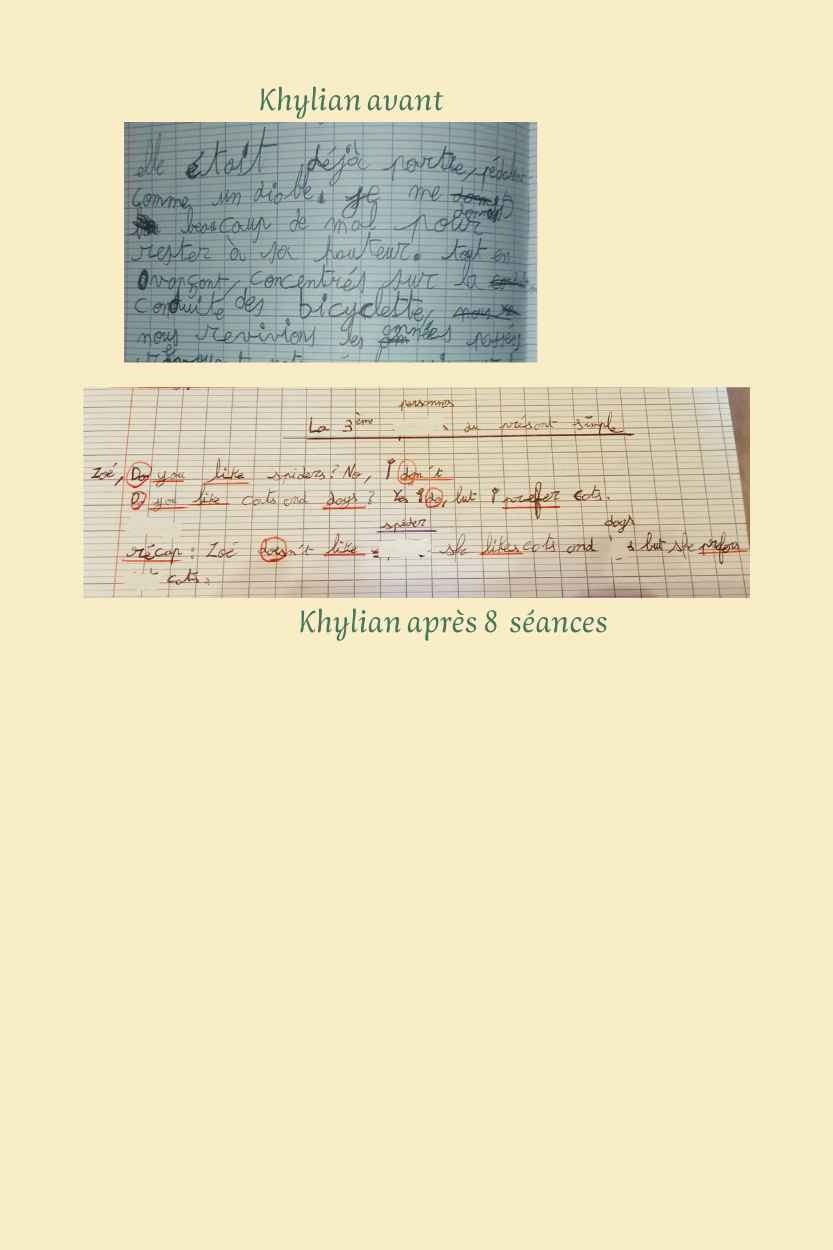 Khylian avant
elle était déjà partie, pédalant
comme un diable. Je me
beaucoup de mal pour
rester à sa hauteur. tout en
avançant, concentrés sur la
conduite des bicyclette,
nous revivions les années passés
personnes
La 3ème au présent simple
Zoé, Do you like spiders? No, I don't
Do you like cats and dogs? Yes I do, but I prefer cats.
spider
dogs
récap : Zoé doesn't like she likes cats and but she prefers
cats.
Khylian après 8 séances